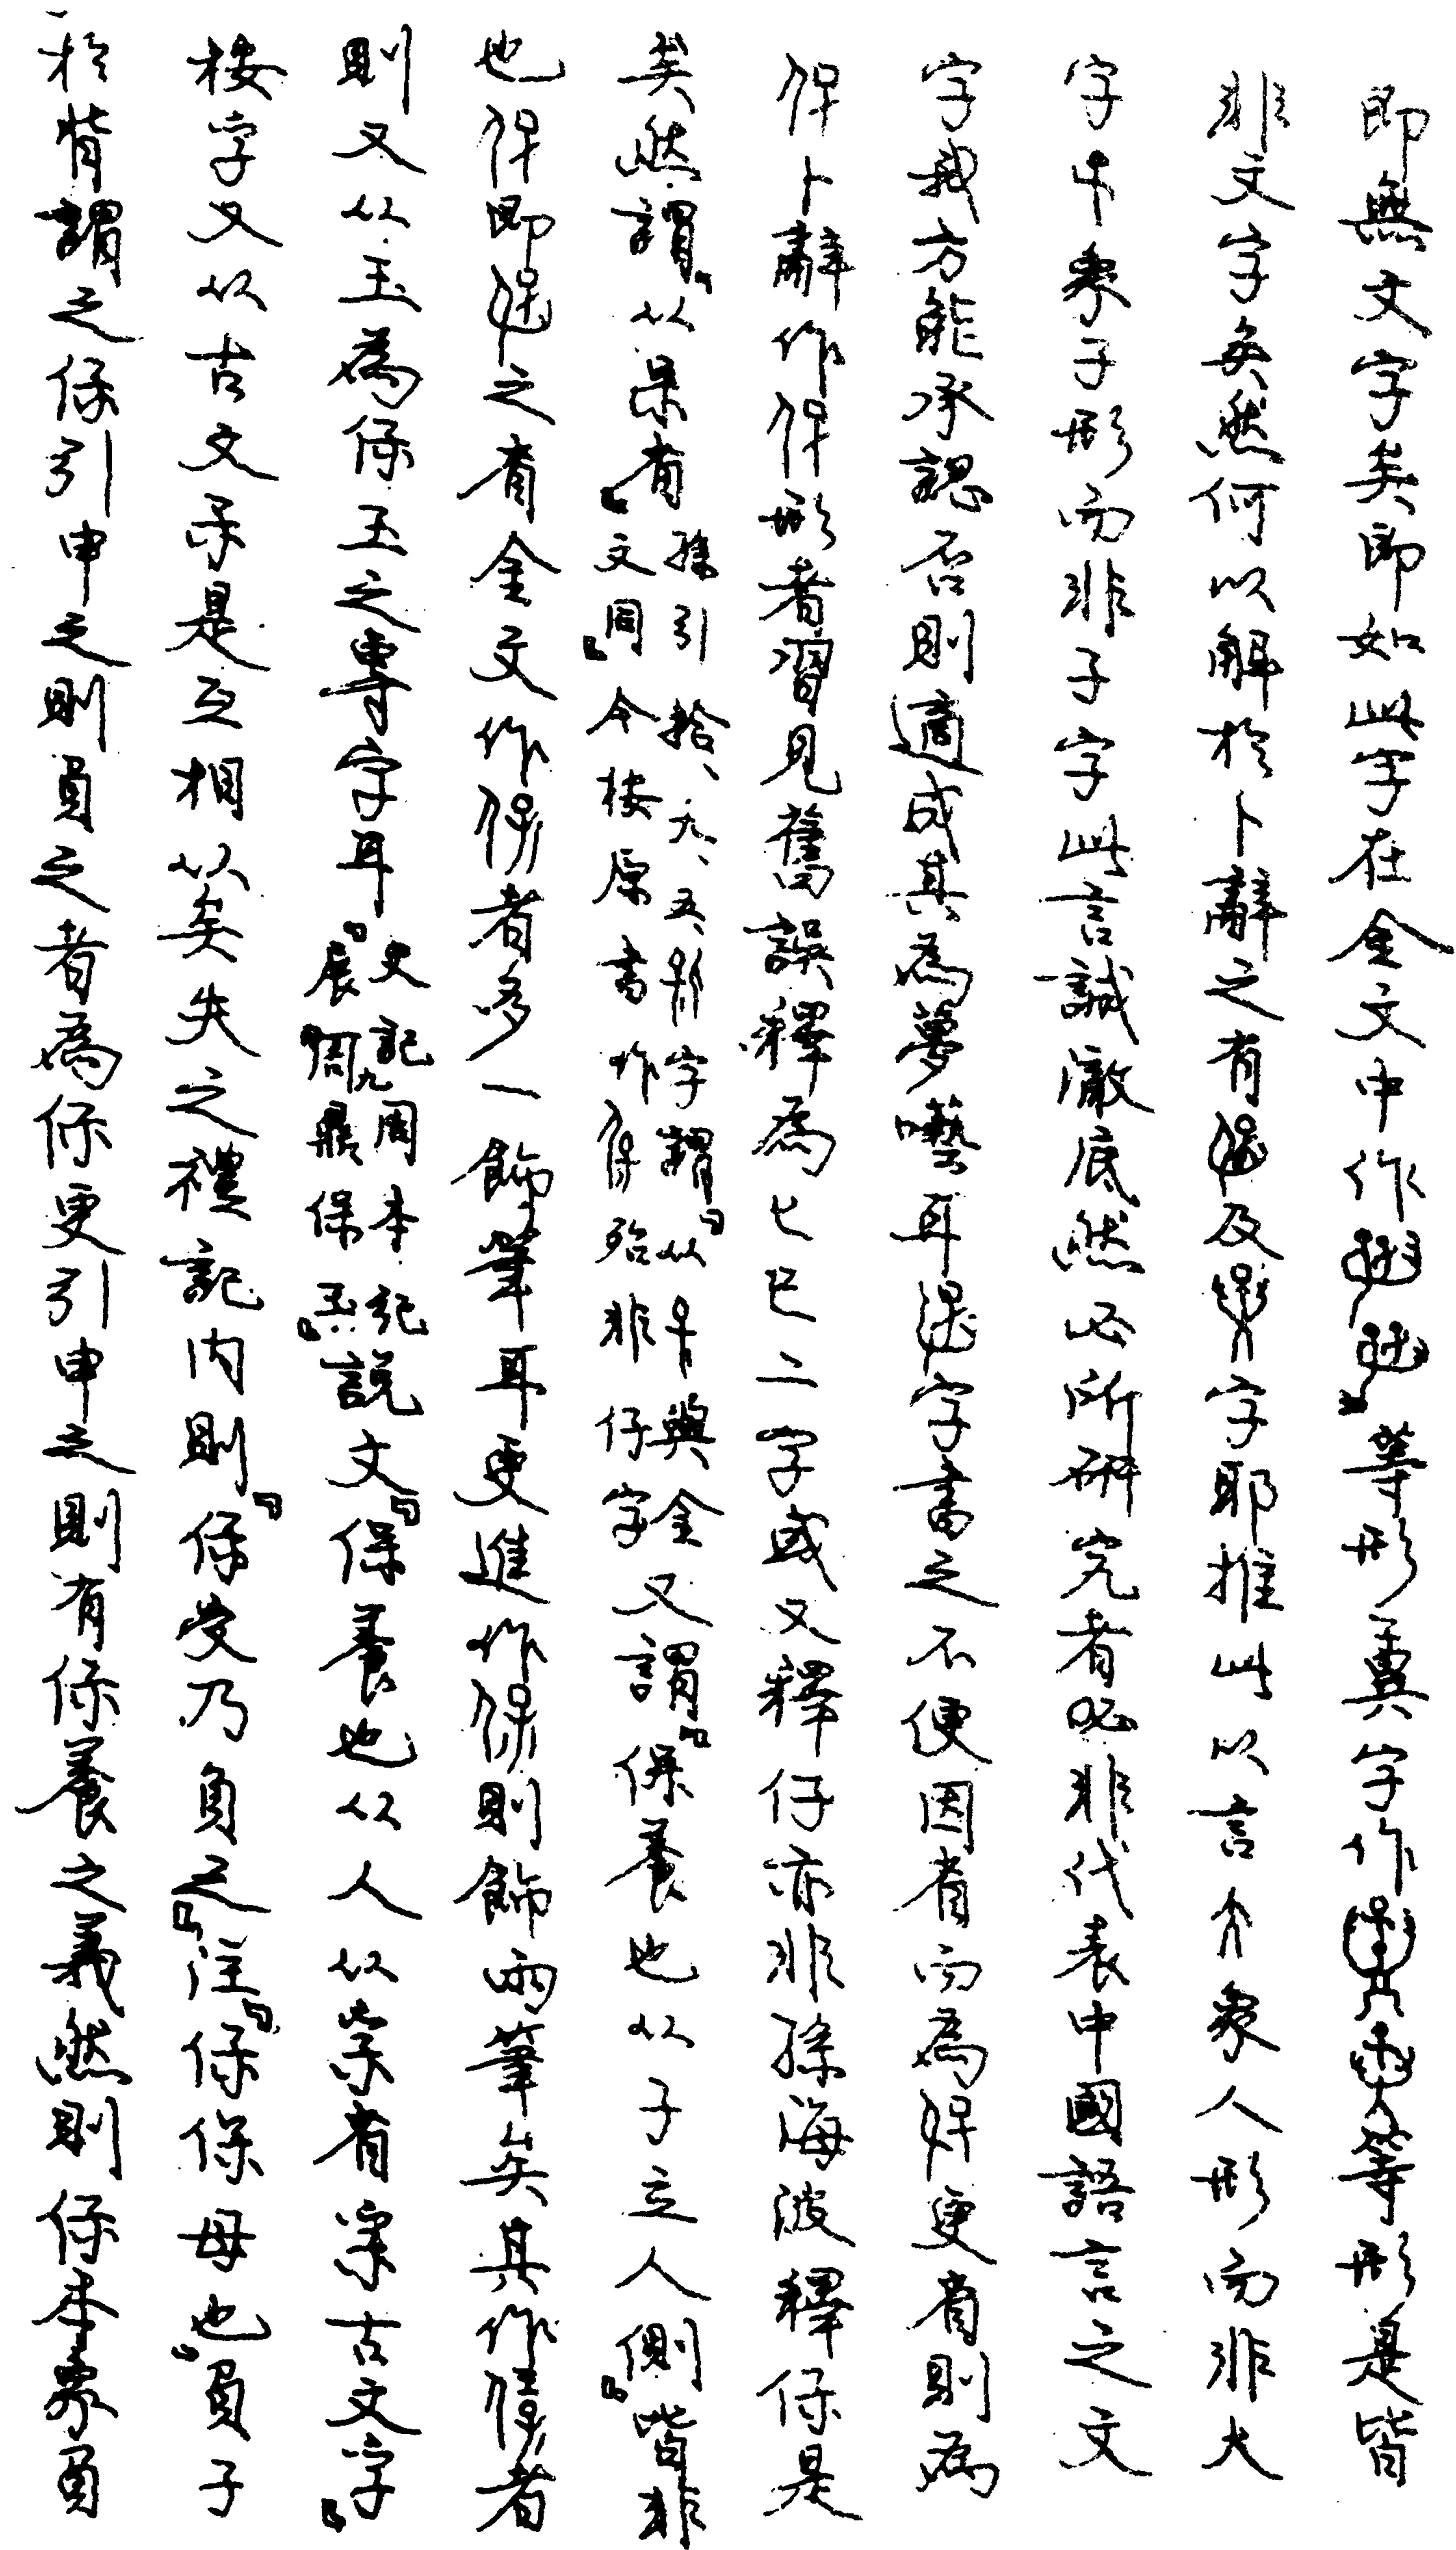 即無文字矣即如此字在金文中作等形冀字作等形是皆
非文字矣然何以解於卜辭之有及字耶推此以言象人形而非大
字象子形而非子字此言誠澈底然必所研究者必非代表中國語言之文
字我方能承認否則適成其為夢囈耳字書之不便因省而為更省則為
㑔卜辭作㑔形者習見舊誤釋為亡巳二字或又釋仔亦非孫海波釋保是
矣然謂『从呆省』孫引拾、九、五、形字謂『从與金文同』今按原書作殆非仔字又謂『保養也从子立人側』皆非
也㑔即之省金文作者多一飾筆耳更進作保則飾兩筆矣其作者
則又从玉為保玉之專字耳史記周本紀『展九鼎保玉』說文『保養也从人从省古文孚』
按字又从古文是互相从矣失之禮記內則『保受乃負之』注『保保母也』負子
於背謂之保引申之則負之者為保更引申之則有保養之義然則保本象負